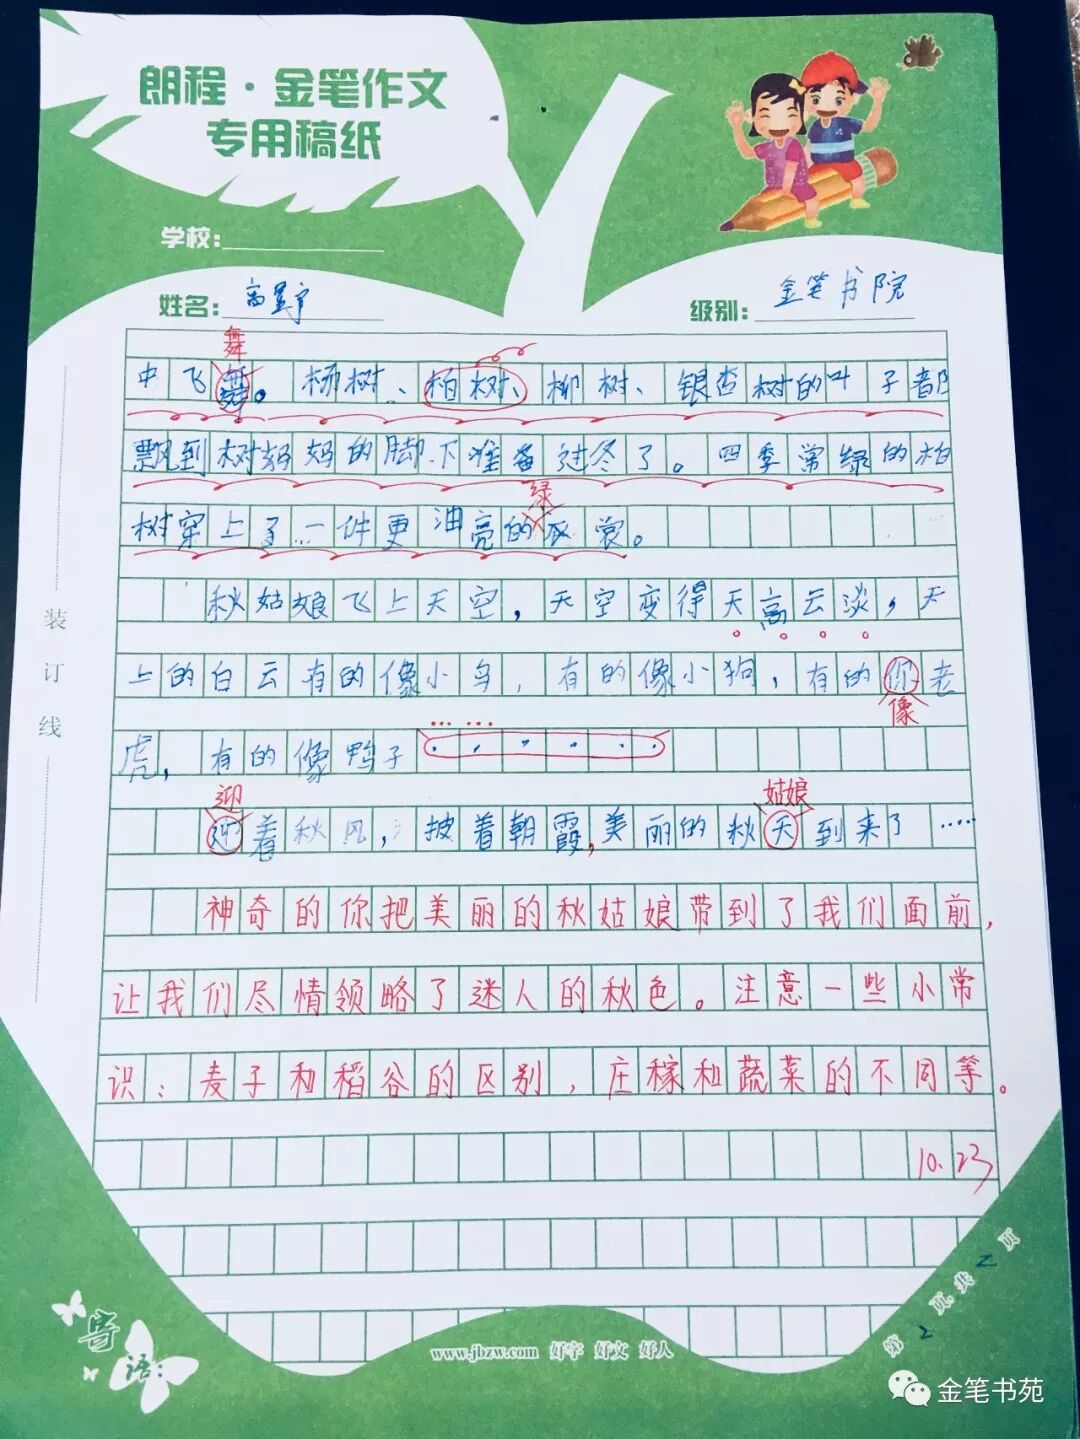 朗程·金笔作文
专用稿纸
学校:
姓名: 高 宇
级别: 金笔书院
舞
中飞舞。杨树、柏树、柳树、银杏树的叶子都
飘到树妈妈的脚下准备过冬了。四季常绿的柏
绿
树穿上了一件更油亮的衣裳。
秋姑娘飞上天空，天空变得天高云淡，天
上的白云有的像小鸟，有的像小狗，有的你老
像
虎，有的像鸭子
……
迎 姑娘
迎着秋风，披着朝霞，美丽的秋天到来了……
神奇的你把美丽的秋姑娘带到了我们面前，
让我们尽情领略了迷人的秋色。注意一些小常
识：麦子和稻谷的区别，庄稼和蔬菜的不同等。
10.23
装订线
寄语:
www.jbzw.com 好字 好文 好人
第2页,共2页
金笔书苑